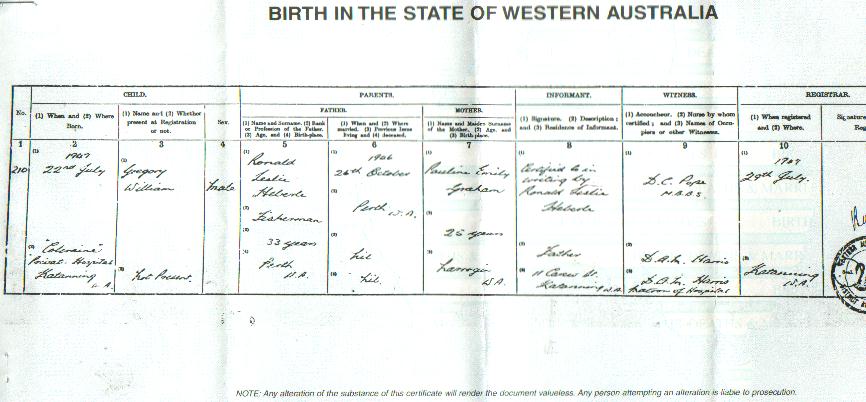 BIRTH IN THE STATE OF WESTERN AUSTRALIA
CHILD. PARENTS. INFORMANT. WITNESS. REGISTRAR.
FATHER. MOTHER.
No.
(1) When and (2) Where Born.
(1) Name and (2) Whether present at Registration or not.
Sex.
(1) Name and Surname. (2) Rank or Profession of the Father. (3) Age, and (4) Birth-place.
(1) When and (2) Where married. (3) Previous Issue living and (4) deceased.
(1) Name and Maiden Surname of the Mother. (2) Age, and (3) Birth-place.
(1) Signature. (2) Description; and (3) Residence of Informant.
(1) Accoucheur. (2) Nurse by whom certified; and (3) Names of Occupiers or other Witnesses.
(1) When registered and (2) Where.
1 2 3 4 5 6 7 8 9 10
210
(1) 1947
22nd July
(2) "Coleraine"
Private Hospital
Katanning
W.A.
(1) Gregory
William
(2) Not Present.
Male
(1) Ronald
Leslie
Heberle
(2) Fisherman
(3) 33 years
(4) Perth
W.A.
(1) 1946
26th October
(2) Perth W.A.
(3) Nil
(4) Nil.
(1) Pauline Emily
Graham
(2) 25 years
(3) Narrogin
W.A.
(1) Certified to in
writing by
Ronald Leslie
Heberle
(2) Father
(3) 11 Carew St.
Katanning W.A.
(1) D.C. Pope
M.B.B.S.
(2) D.A.M. Harris
(3) D.A.M. Harris
Matron of Hospital
(1) 1947
29th July.
(2) Katanning
W.A.
NOTE: Any alteration of the substance of this certificate will render the document valueless. Any person attempting an alteration is liable to prosecution.